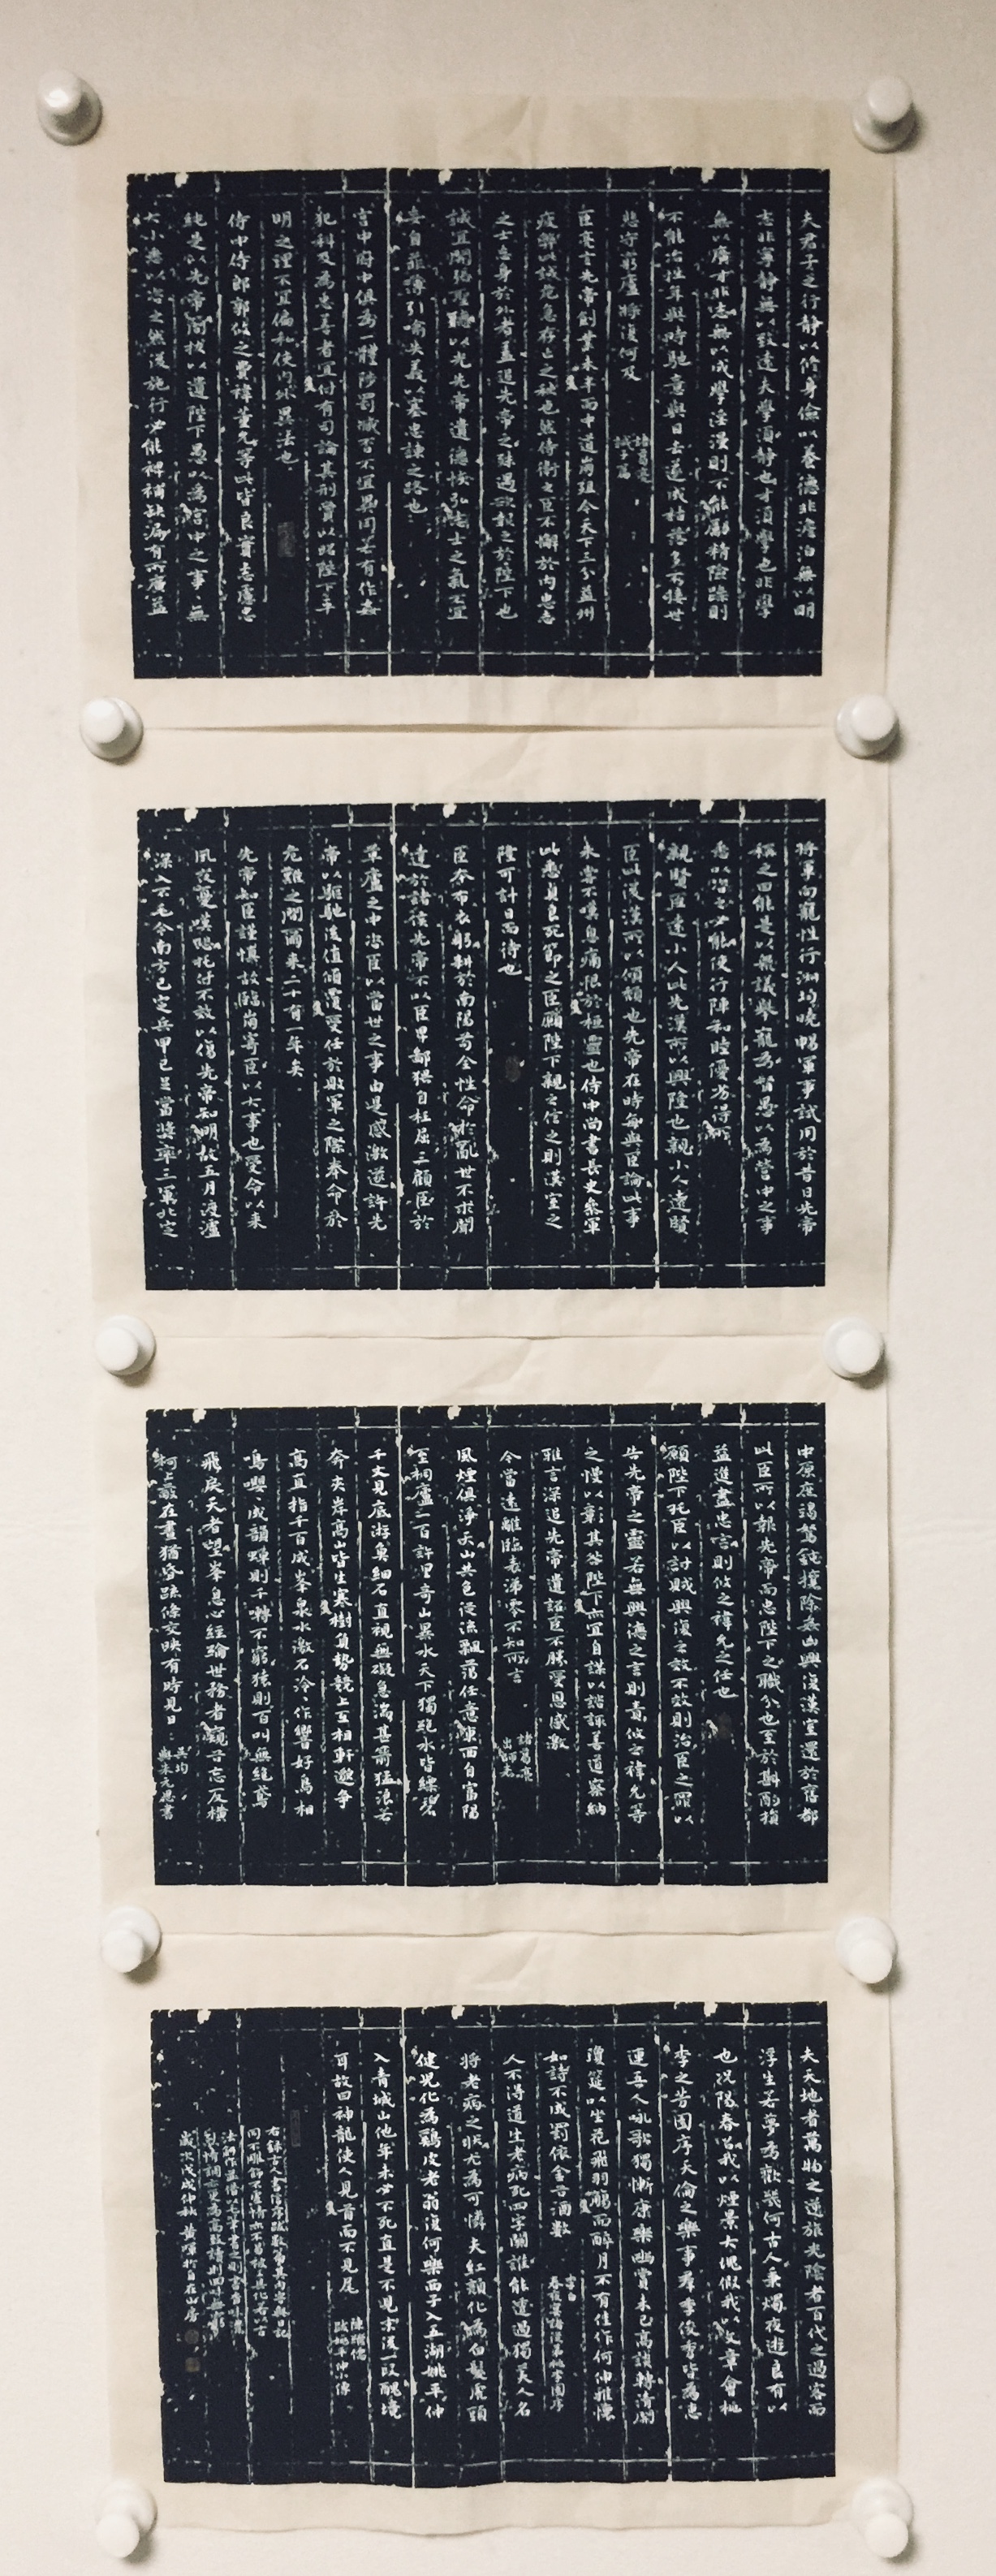 夫君子之行靜以修身儉以養德非澹泊無以明
志非寧靜無以致遠夫學須靜也才須學也非學
無以廣才非志無以成學淫漫則不能勵精險躁則
不能治性年與時馳意與日去遂成枯落多不接世
悲守窮廬將復何及
諸葛亮
誡子書
臣亮言先帝創業未半而中道崩殂今天下三分益州
疲弊此誠危急存亡之秋也然侍衛之臣不懈於內忠志
之士忘身於外者蓋追先帝之殊遇欲報之於陛下也
誠宜開張聖聽以光先帝遺德恢弘志士之氣不宜
妄自菲薄引喻失義以塞忠諫之路也
宮中府中俱為一體陟罰臧否不宜異同若有作姦
犯科及為忠善者宜付有司論其刑賞以昭陛下平
明之理不宜偏私使內外異法也
侍中侍郎郭攸之費禕董允等此皆良實志慮忠
純是以先帝簡拔以遺陛下愚以為宮中之事無
大小悉以咨之然後施行必能裨補缺漏有所廣益
將軍向寵性行淑均曉暢軍事試用於昔日先帝
稱之曰能是以眾議舉寵為督愚以為營中之事
悉以咨之必能使行陣和睦優劣得所
親賢臣遠小人此先漢所以興隆也親小人遠賢
臣此後漢所以傾頹也先帝在時每與臣論此事
未嘗不嘆息痛恨於桓靈也侍中尚書長史參軍
此悉貞良死節之臣願陛下親之信之則漢室之
隆可計日而待也
臣本布衣躬耕於南陽苟全性命於亂世不求聞
達於諸侯先帝不以臣卑鄙猥自枉屈三顧臣於
草廬之中咨臣以當世之事由是感激遂許先
帝以驅馳後值傾覆受任於敗軍之際奉命於
危難之間爾來二十有一年矣
先帝知臣謹慎故臨崩寄臣以大事也受命以來
夙夜憂嘆恐托付不效以傷先帝知明故五月渡瀘
深入不毛今南方已定兵甲已足當獎率三軍北定
中原庶竭駑鈍攘除姦凶興復漢室還於舊都
此臣所以報先帝而忠陛下之職分也至於斟酌損
益進盡忠言則攸之禕允之任也
願陛下托臣以討賊興復之效不效則治臣之罪以
告先帝之靈若無興德之言則責攸之禕允等
之慢以彰其咎陛下亦宜自謀以諮諏善道察納
雅言深追先帝遺詔臣不勝受恩感激
今當遠離臨表涕零不知所言
諸葛亮
出師表
風煙俱淨天山共色從流飄蕩任意東西自富陽
至桐廬一百許里奇山異水天下獨絕水皆縹碧
千丈見底游魚細石直視無礙急湍甚箭猛浪若
奔夾岸高山皆生寒樹負勢競上互相軒邈爭
高直指千百成峯泉水激石泠泠作響好鳥相
鳴嚶嚶成韻蟬則千轉不窮猿則百叫無絕鳶
飛戾天者望峯息心經綸世務者窺谷忘反橫
柯上蔽在晝猶昏疏條交映有時見日
吳均
與朱元思書
夫天地者萬物之逆旅光陰者百代之過客而
浮生若夢為歡幾何古人秉燭夜遊良有以
也況陽春召我以煙景大塊假我以文章會桃
李之芳園序天倫之樂事羣季俊秀皆為惠
連吾人詠歌獨慚康樂幽賞未已高談轉清開
瓊筵以坐花飛羽觴而醉月不有佳作何伸雅懷
如詩不成罰依金谷酒數
李白
春夜宴諸從弟桃李園序
人不得道生老病死四字關誰能透過獨美人名
將老病之狀尤為可憐夫紅顏化為白髮虎頭
健兒化為雞皮老翁復何樂西子入五湖姚平仲
入青城山他年未必不死直是不見末後一段醜境
耳故曰神龍使人見首而不見尾
陳繼儒
跋姚平仲小傳